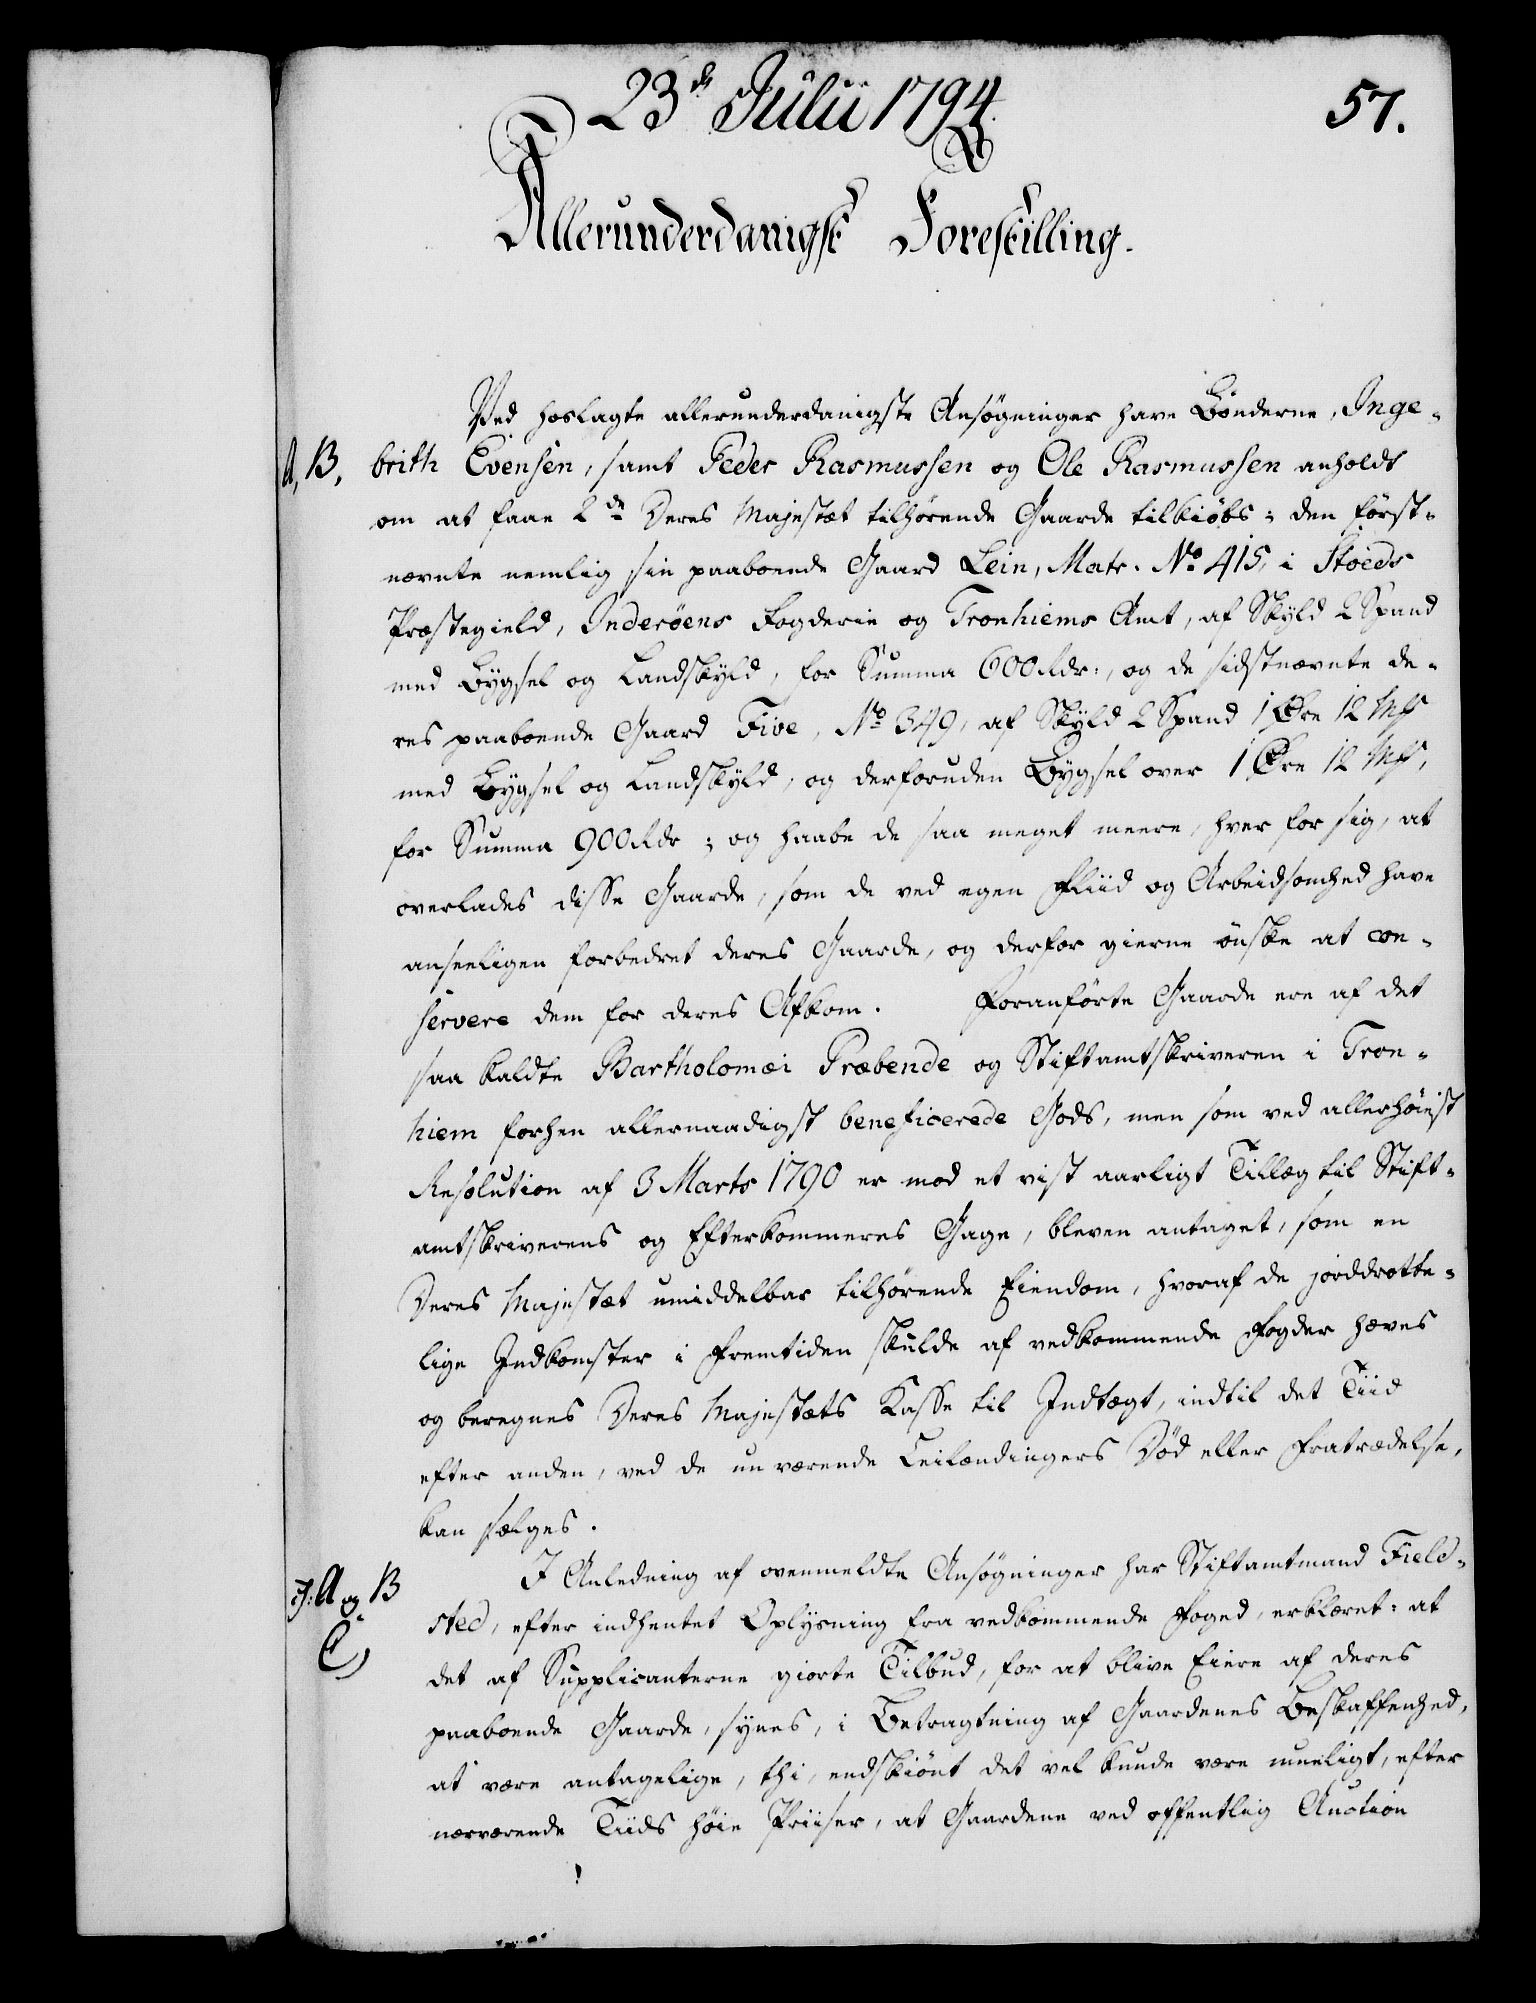 23de Julii 1794.
57.
Allerunderdanigst Forestilling.
Ved hoslagte allerunderdanigste Ansøgninger have Bønderne, Inge-
A, B, brith Evensen, samt Peder Rasmussen og Ole Rasmussen anholdt
om at faae 2de Deres Majestæt tilhørende Gaarde tilkiøbs; den først-
nævnte nemlig sin paaboende Gaard Lein, Matr. No 415, i Stoeds
Præstegield, Inderøens Fogderie og Tronhiems Amt, af Skyld 2 Spand
med Bygsel og Landskyld, for Summa 600 Rdr:, og de sidstnævnte de-
res paaboende Gaard Five, No 349, af Skyld 2 Spand 1 Øre 12 Mk
med Bygsel og Landskyld, og derforuden Bygsel over 1 Øre 12 Mk,
for Summa 900 Rdr; og haabe de saa meget meere, hver for sig, at
overlades disse Gaarde, som de ved egen Fliid og Arbeidsomhed have
anseeligen forbedret deres Gaarde, og derfor gierne ønske at con-
servere dem for deres Afkom. Foranførte Gaarde ere af det
saa kaldte Bartholomæi Præbende og Stiftamtskriveren i Tron-
hiem forhen allernaadigst beneficerede Gods, men som ved allerhøiest
Resolution af 3 Marts 1790 er mod et vist aarligt Tillæg til Stift-
amtskriverens og Efterkommeres Gage, bleven antaget, som en
Deres Majestæt umiddelbar tilhørende Eiendom, hvoraf de jorddrotte-
lige Indkomster i Fremtiden skulde af vedkommende Fogder hæves
og beregnes Deres Majestæts Kasse til Indtægt, indtil det Tiid
efter anden, ved de nu værende Leilændingers Død eller Fratrædelse,
kan sælges.
I Anledning af ovenmeldte Ansøgninger har Stiftamtmand Field-
ɔ: A og B
C)
sted, efter indhentet Oplysning fra vedkommende Foged, erklæret: at
det af Supplicanterne giorte Tilbud, for at blive Eiere af deres
paaboende Gaarde, synes, i Betragtning af Gaardenes Beskaffenhed,
at være antagelige, thi, endskiønt det vel kunde være mueligt, efter
nærværende Tiids høie Priiser, at Gaardene ved offentlig Auction